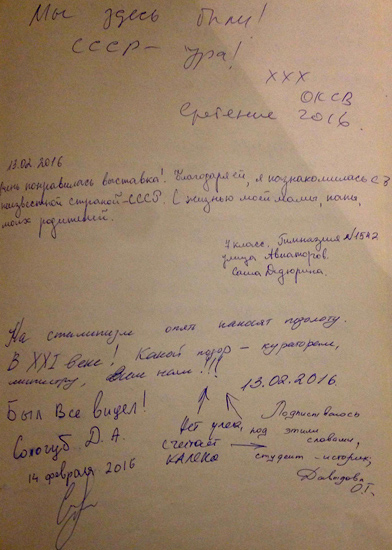 Мы здесь были!
СССР - ура!
XXX
ОКСВ
Сретение 2016.
13.02.2016
понравилась выставка! Благодаря ей, я познакомилась с
неизвестной страной - СССР. С жизнью моей мамы, папы,
моих родителей.
7 класс. Гимназия №1542
улица Авиаторов.
Саша Дедюрина.
На сталинизм опять наносят позолоту.
В XXI веке! Какой позор - кураторам,
министру, всем нам!!!
13.02.2016
Был Все видел!
Сологуб Д. А.
14 февраля 2016
Нет улега,
считает
КАЛЕКА
Подписываюсь
под этими
словами,
студент-историк,
Давыдова
О.Г.